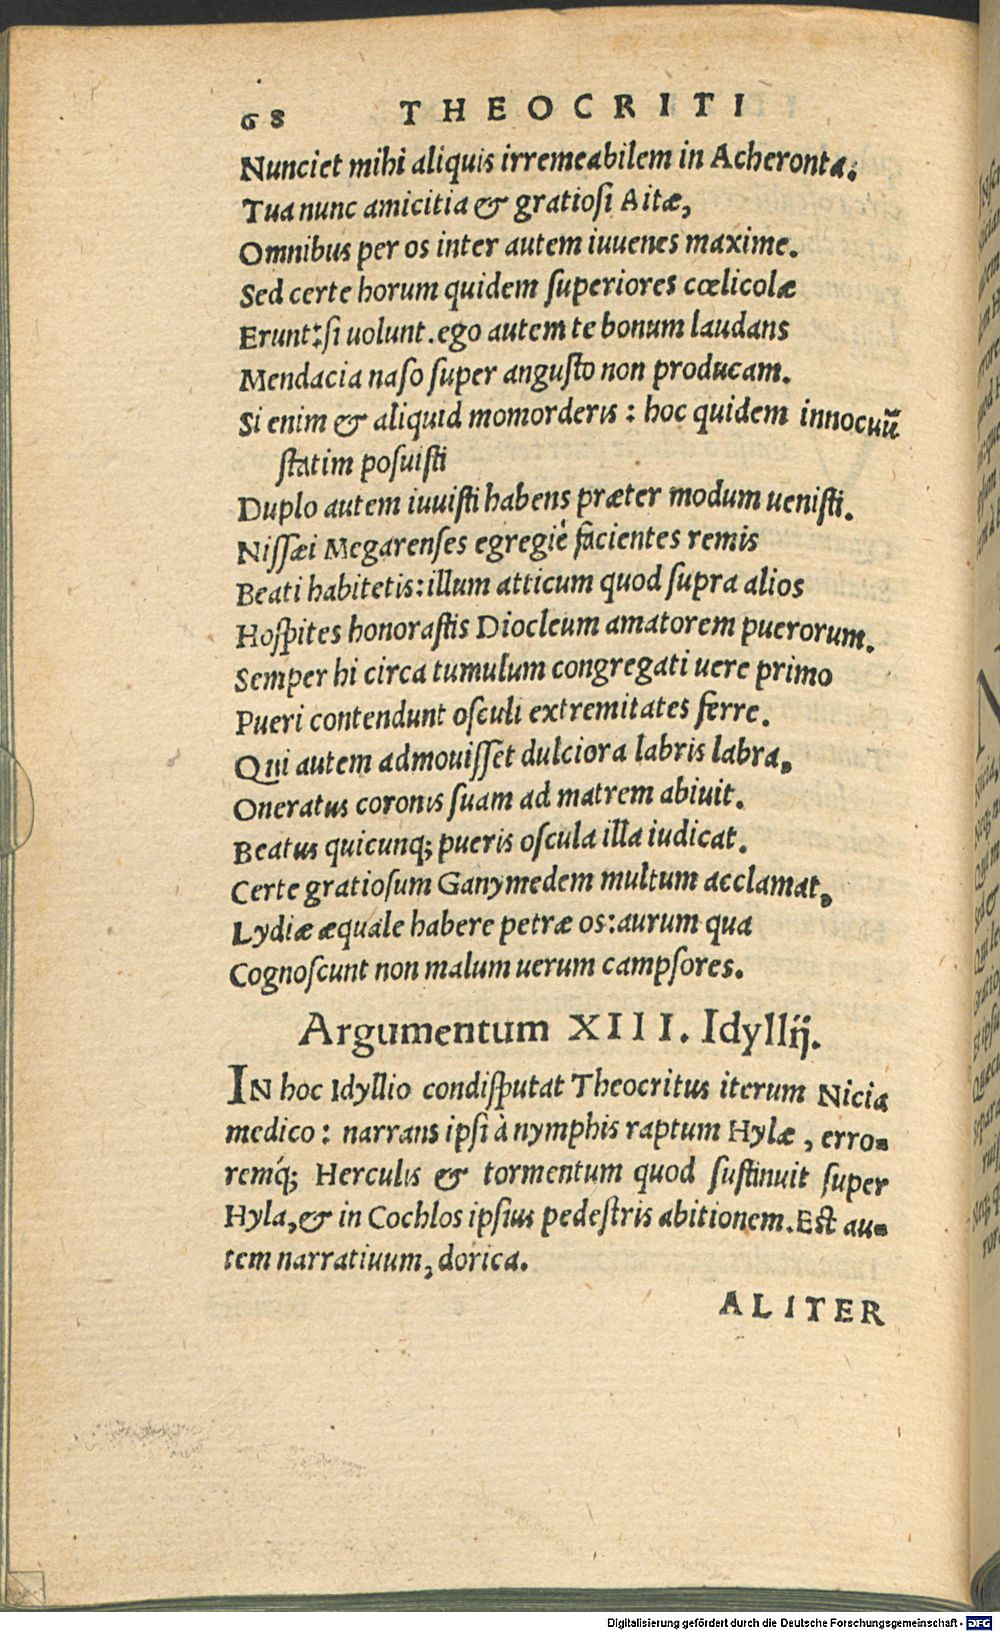 68 THEOCRITI
Nunciet mihi aliquis irremeabilem in Acheronta.
Tua nunc amicitia & gratiosi Aitæ,
Omnibus per os inter autem iuuenes maxime.
Sed certe horum quidem superiores cœlicolæ
Erunt: si uolunt. ego autem te bonum laudans
Mendacia naso super angusto non producam.
Si enim & aliquid momorderis: hoc quidem innocuũ
statim posuisti
Duplo autem iuuisti habens præter modum uenisti.
Nissæi Megarenses egregiè facientes remis
Beati habitetis: illum atticum quod supra alios
Hospites honorastis Diocleum amatorem puerorum.
Semper hi circa tumulum congregati uere primo
Pueri contendunt osculi extremitates ferre.
Qui autem admouisset dulciora labris labra,
Oneratus coronis suam ad matrem abiuit.
Beatus quicunq; pueris oscula illa iudicat.
Certe gratiosum Ganymedem multum acclamat,
Lydiæ æquale habere petræ os: aurum qua
Cognoscunt non malum uerum campsores.
Argumentum XIII. Idyllij.
IN hoc Idyllio condisputat Theocritus iterum Nicia
medico: narrans ipsi à nymphis raptum Hylæ, erro-
remq́; Herculis & tormentum quod sustinuit super
Hyla, & in Cochlos ipsius pedestris abitionem. Est au-
tem narratiuum, dorica.
ALITER
Digitalisierung gefördert durch die Deutsche Forschungsgemeinschaft - DFG